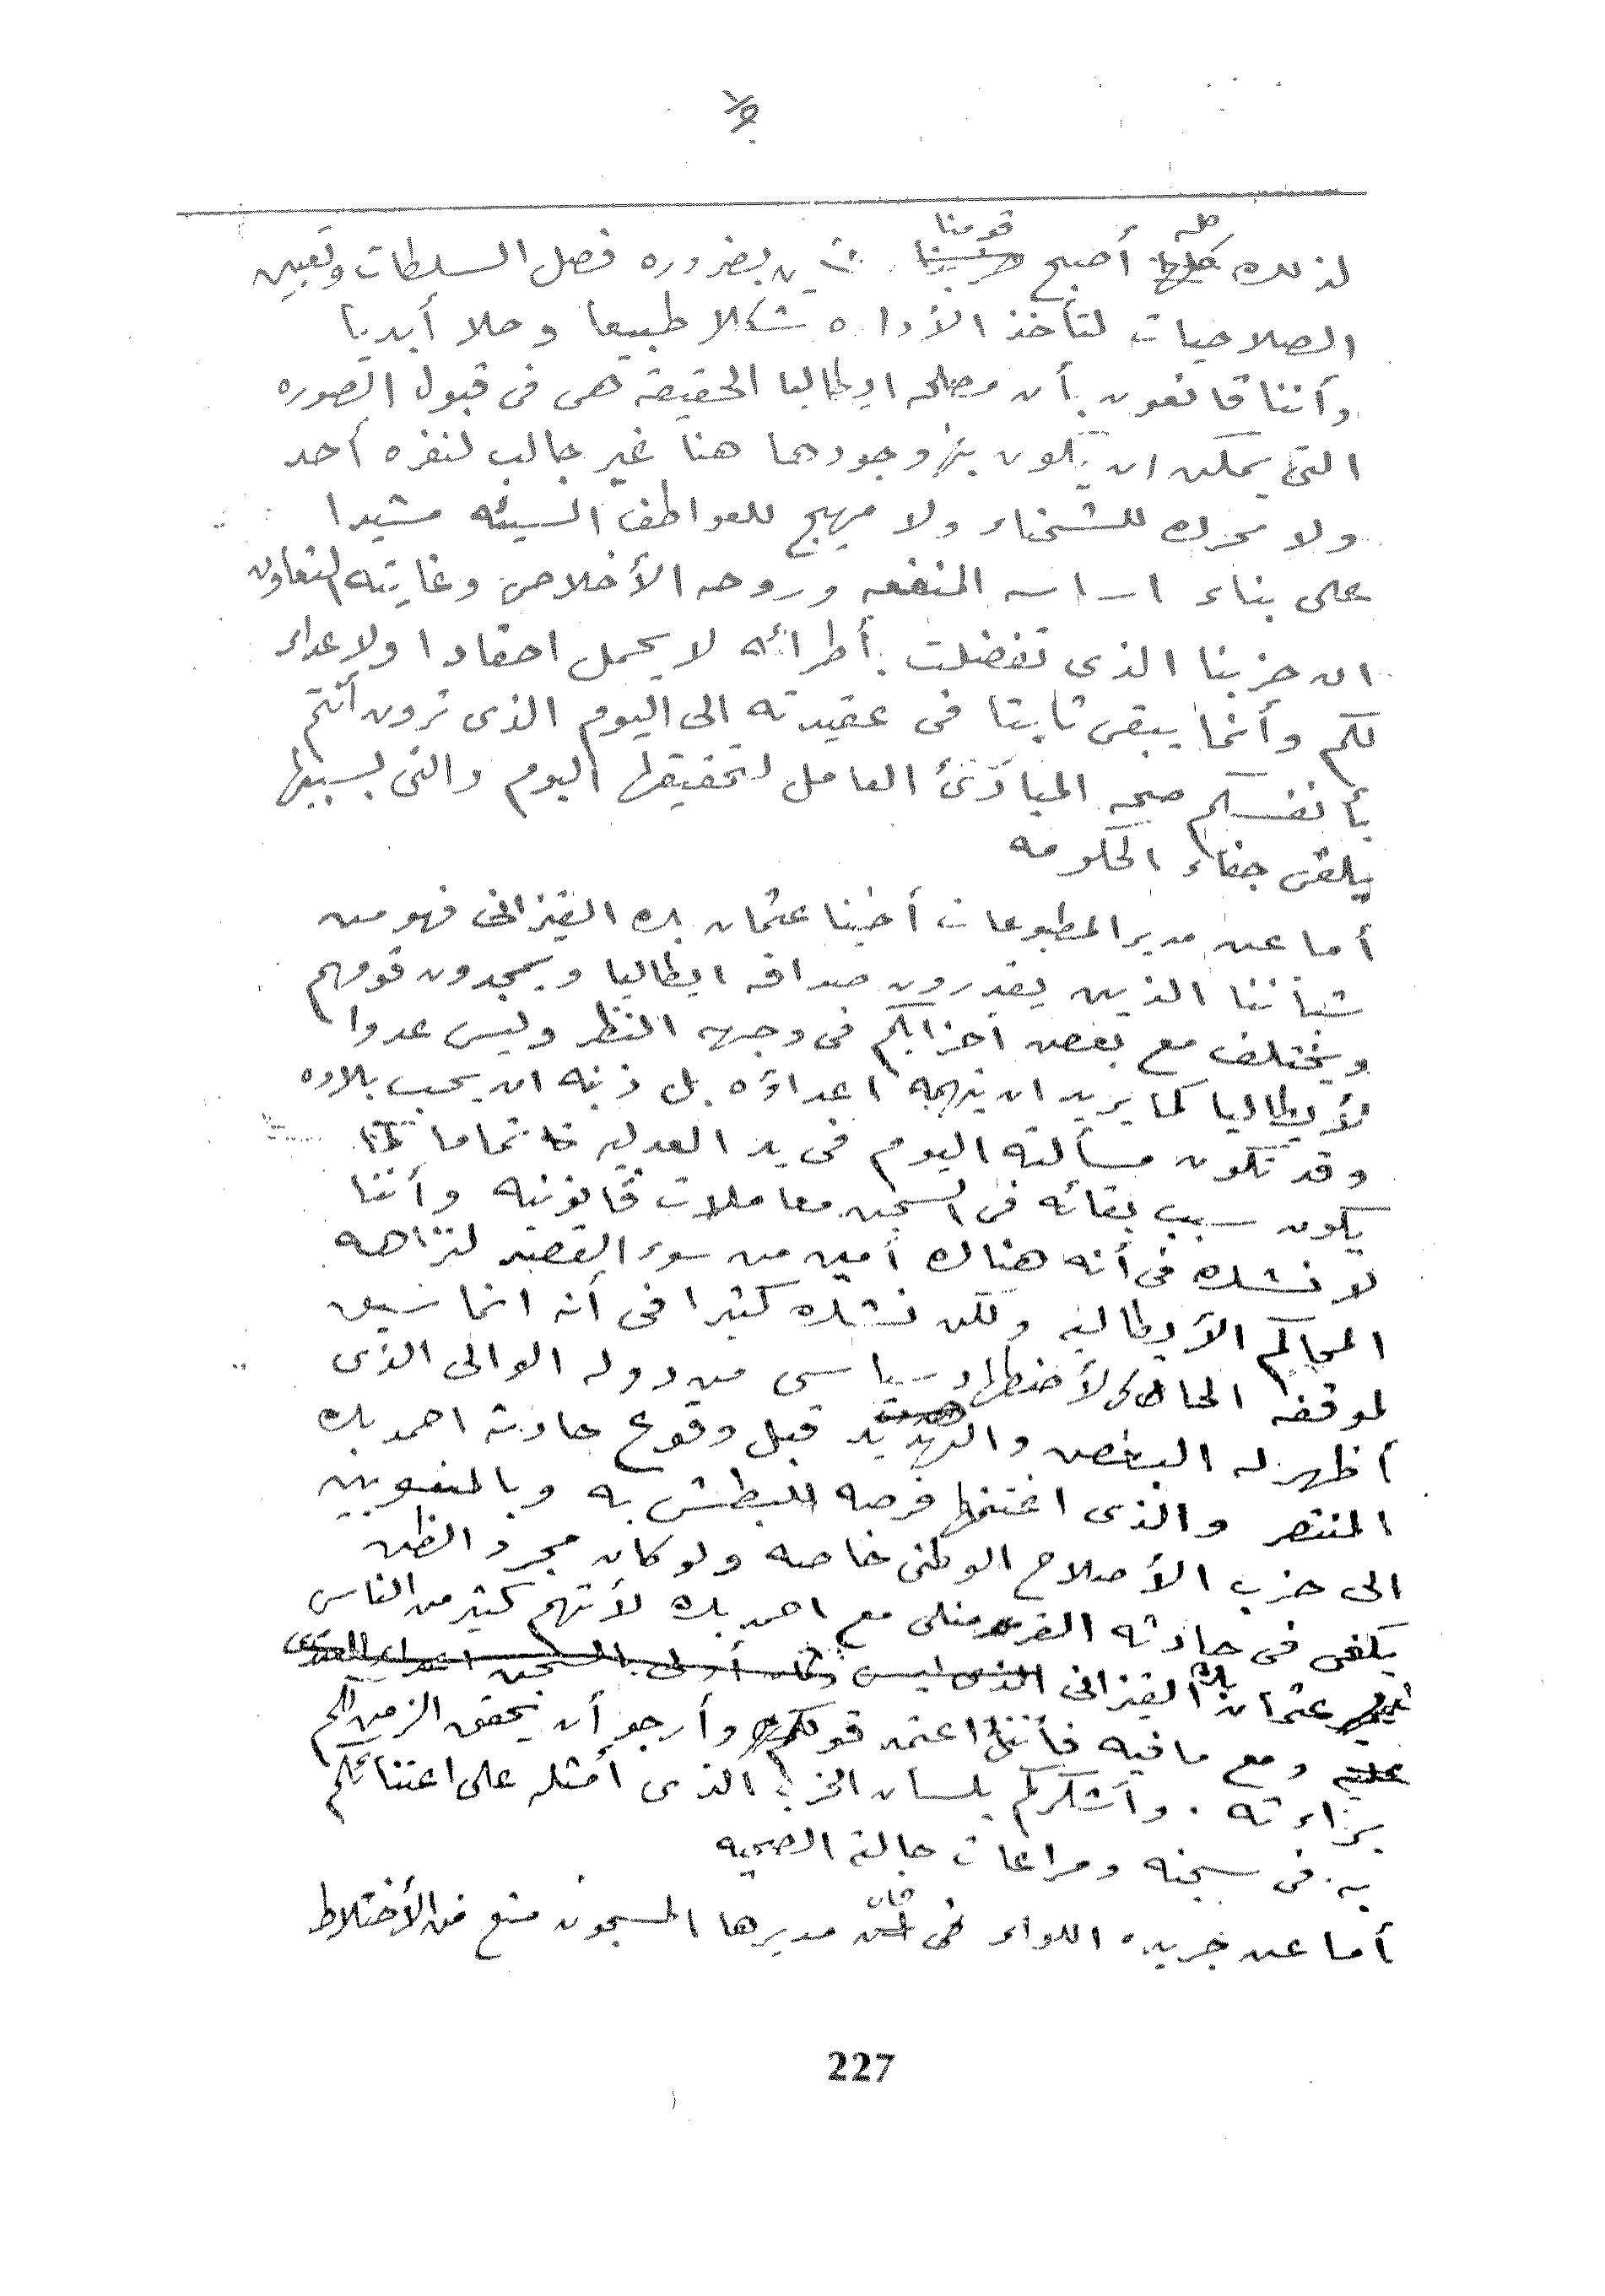 لذلك كله أصبح قومنا بضروره فصل السلطات وتعيين
الصلاحيات لتأخذ الأداه شكلا طبيعيا وحلا أبديا
وأننا قانعون بأن مصلحه ايطاليا الحقيقة هى فى قبول الصوره
التى يمكن ان يكون بها وجودها هنا غير جالب لنفره أحد
ولا محرك للشحناء ولا مهيج للعواطف السيئه مشيدا
على بناء اساسه المنفعه وروحه الأخلاص وغايته التعاون
ان حزبنا الذى تفضلت بأطرائه لا يحمل احقادا ولا عداء
لكم وأنما يبقى ثابتا فى عقيدته الى اليوم الذى ترون أنتم
بأنفسكم صحه المبادئ العامل لتحقيقها اليوم والتى بسببها
يلقى جفاء الحكومه
أما عن مدير المطبوعات أخينا عثمان بك القيزانى فهو من
شبأننا الذين يقدرون صداقه ايطاليا ويمجدون قومهم
ويختلف مع بعض احزابكم فى وجهه النظر وليس عدوا
لأيطاليا كما يريد ان يتهمه اعداؤه بل ذنبه ان يحب بلاده
وقد تكون مسألته اليوم فى يد العدليه تماما
يكون سبب بقائه فى السجن معاملات قانونيه وأننا
لا نشك فى أنه هناك أمين من سوء القصد لنزاهه
المحاكم الأيطاليه ولكن نشك كثيرا فى أنه انما سيق
لموقفه الحالى لأضطهاد سياسى من دوله الوالى الذى
أظهر له البغض والتهديد قبل وقوع حادثة احمد بك
المنتصر والذى اغتنمها فرصه للبطش به وبالمنسوبين
الى حزب الأصلاح الوطنى خاصه ولو كان مجرد الظن
يكفى فى حادثه القره منلى مع احمد بك لأتهم كثير من الناس
غير عثمان بك القيزانى الذى ليس أولى بالسجن
ومع ما فيه فأننى اعتمد قولكم وأرجو أن يحقق الزمن لكم
براءته . وأشكركم بلسان الحزب الذى أمثله على اعتنائكم
به فى سجنه ومراعات حالة الصحيه
أما عن جريده اللواء فأن مديرها المسجون منع من الأختلاط
227